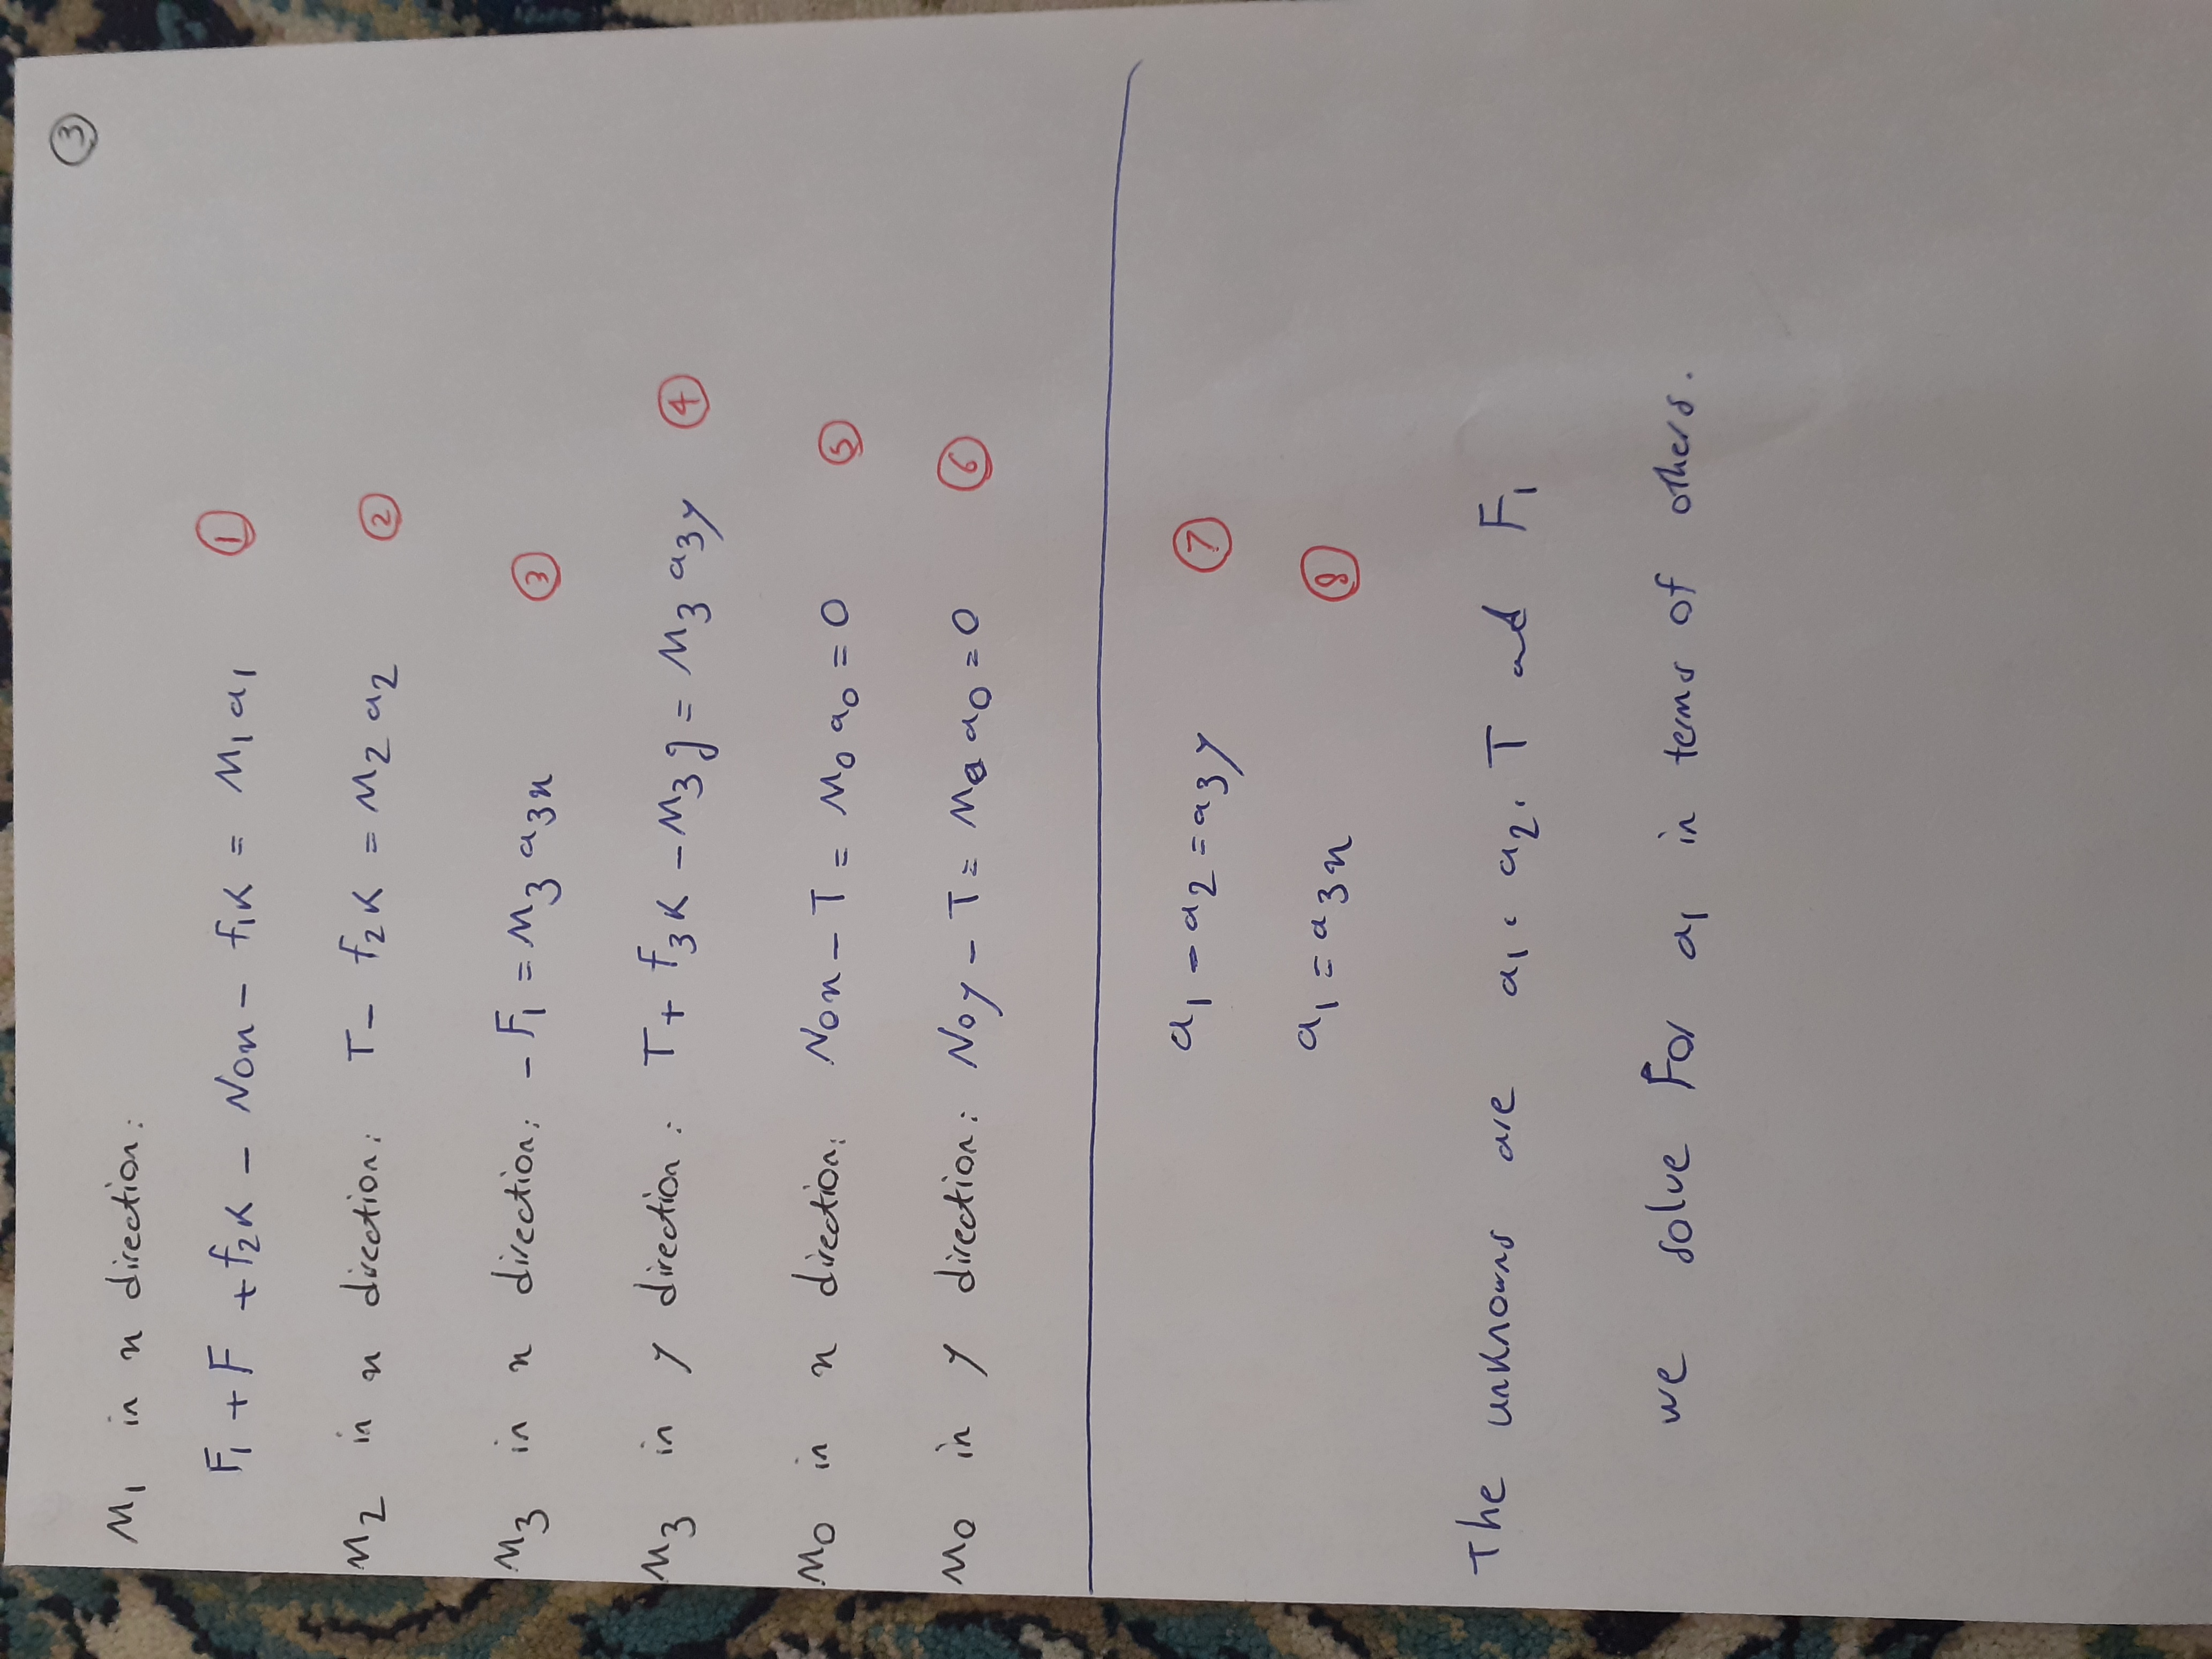 ③
M1 in x direction:
F1 + F + f2K - Nox - f1K = M1 a1 ①
M2 in x direction: T - f2K = M2 a2 ②
M3 in x direction: - F1 = M3 a3x ③
M3 in y direction: T + f3K - M3 g = M3 a3y ④
M0 in x direction: Nox - T = M0 a0 = 0 ⑤
M0 in y direction: Noy - T = M0 a0 = 0 ⑥
a1 - a2 = a3y ⑦
a1 = a3x ⑧
The unknowns are a1, a2, T and F1
we solve For a1 in terms of others.